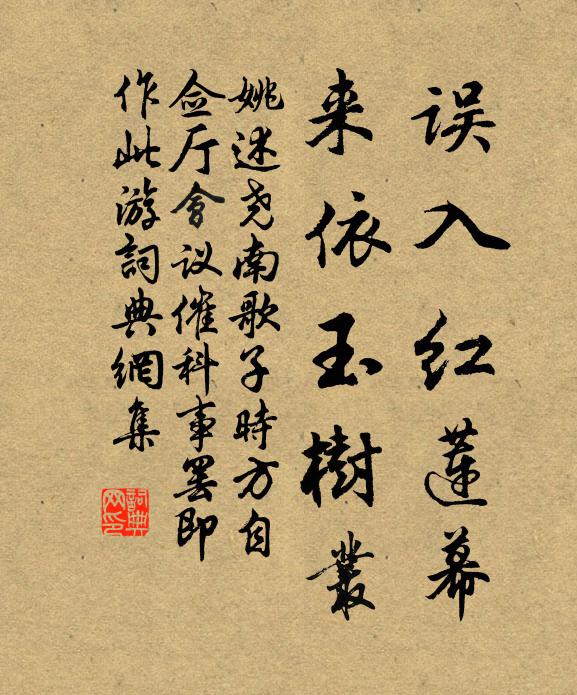 误入红莲幕
来依玉树丛
姚述尧南歌子时方自
佥厅会议催科事罢即
作此游词典網集
词典网印